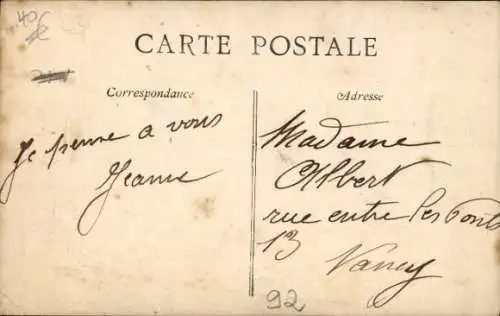 40
CARTE POSTALE
Correspondance
Je pense a vous
Jeanne
Adresse
Madame
Albert
rue entre les Ponts
13
Nancy
92